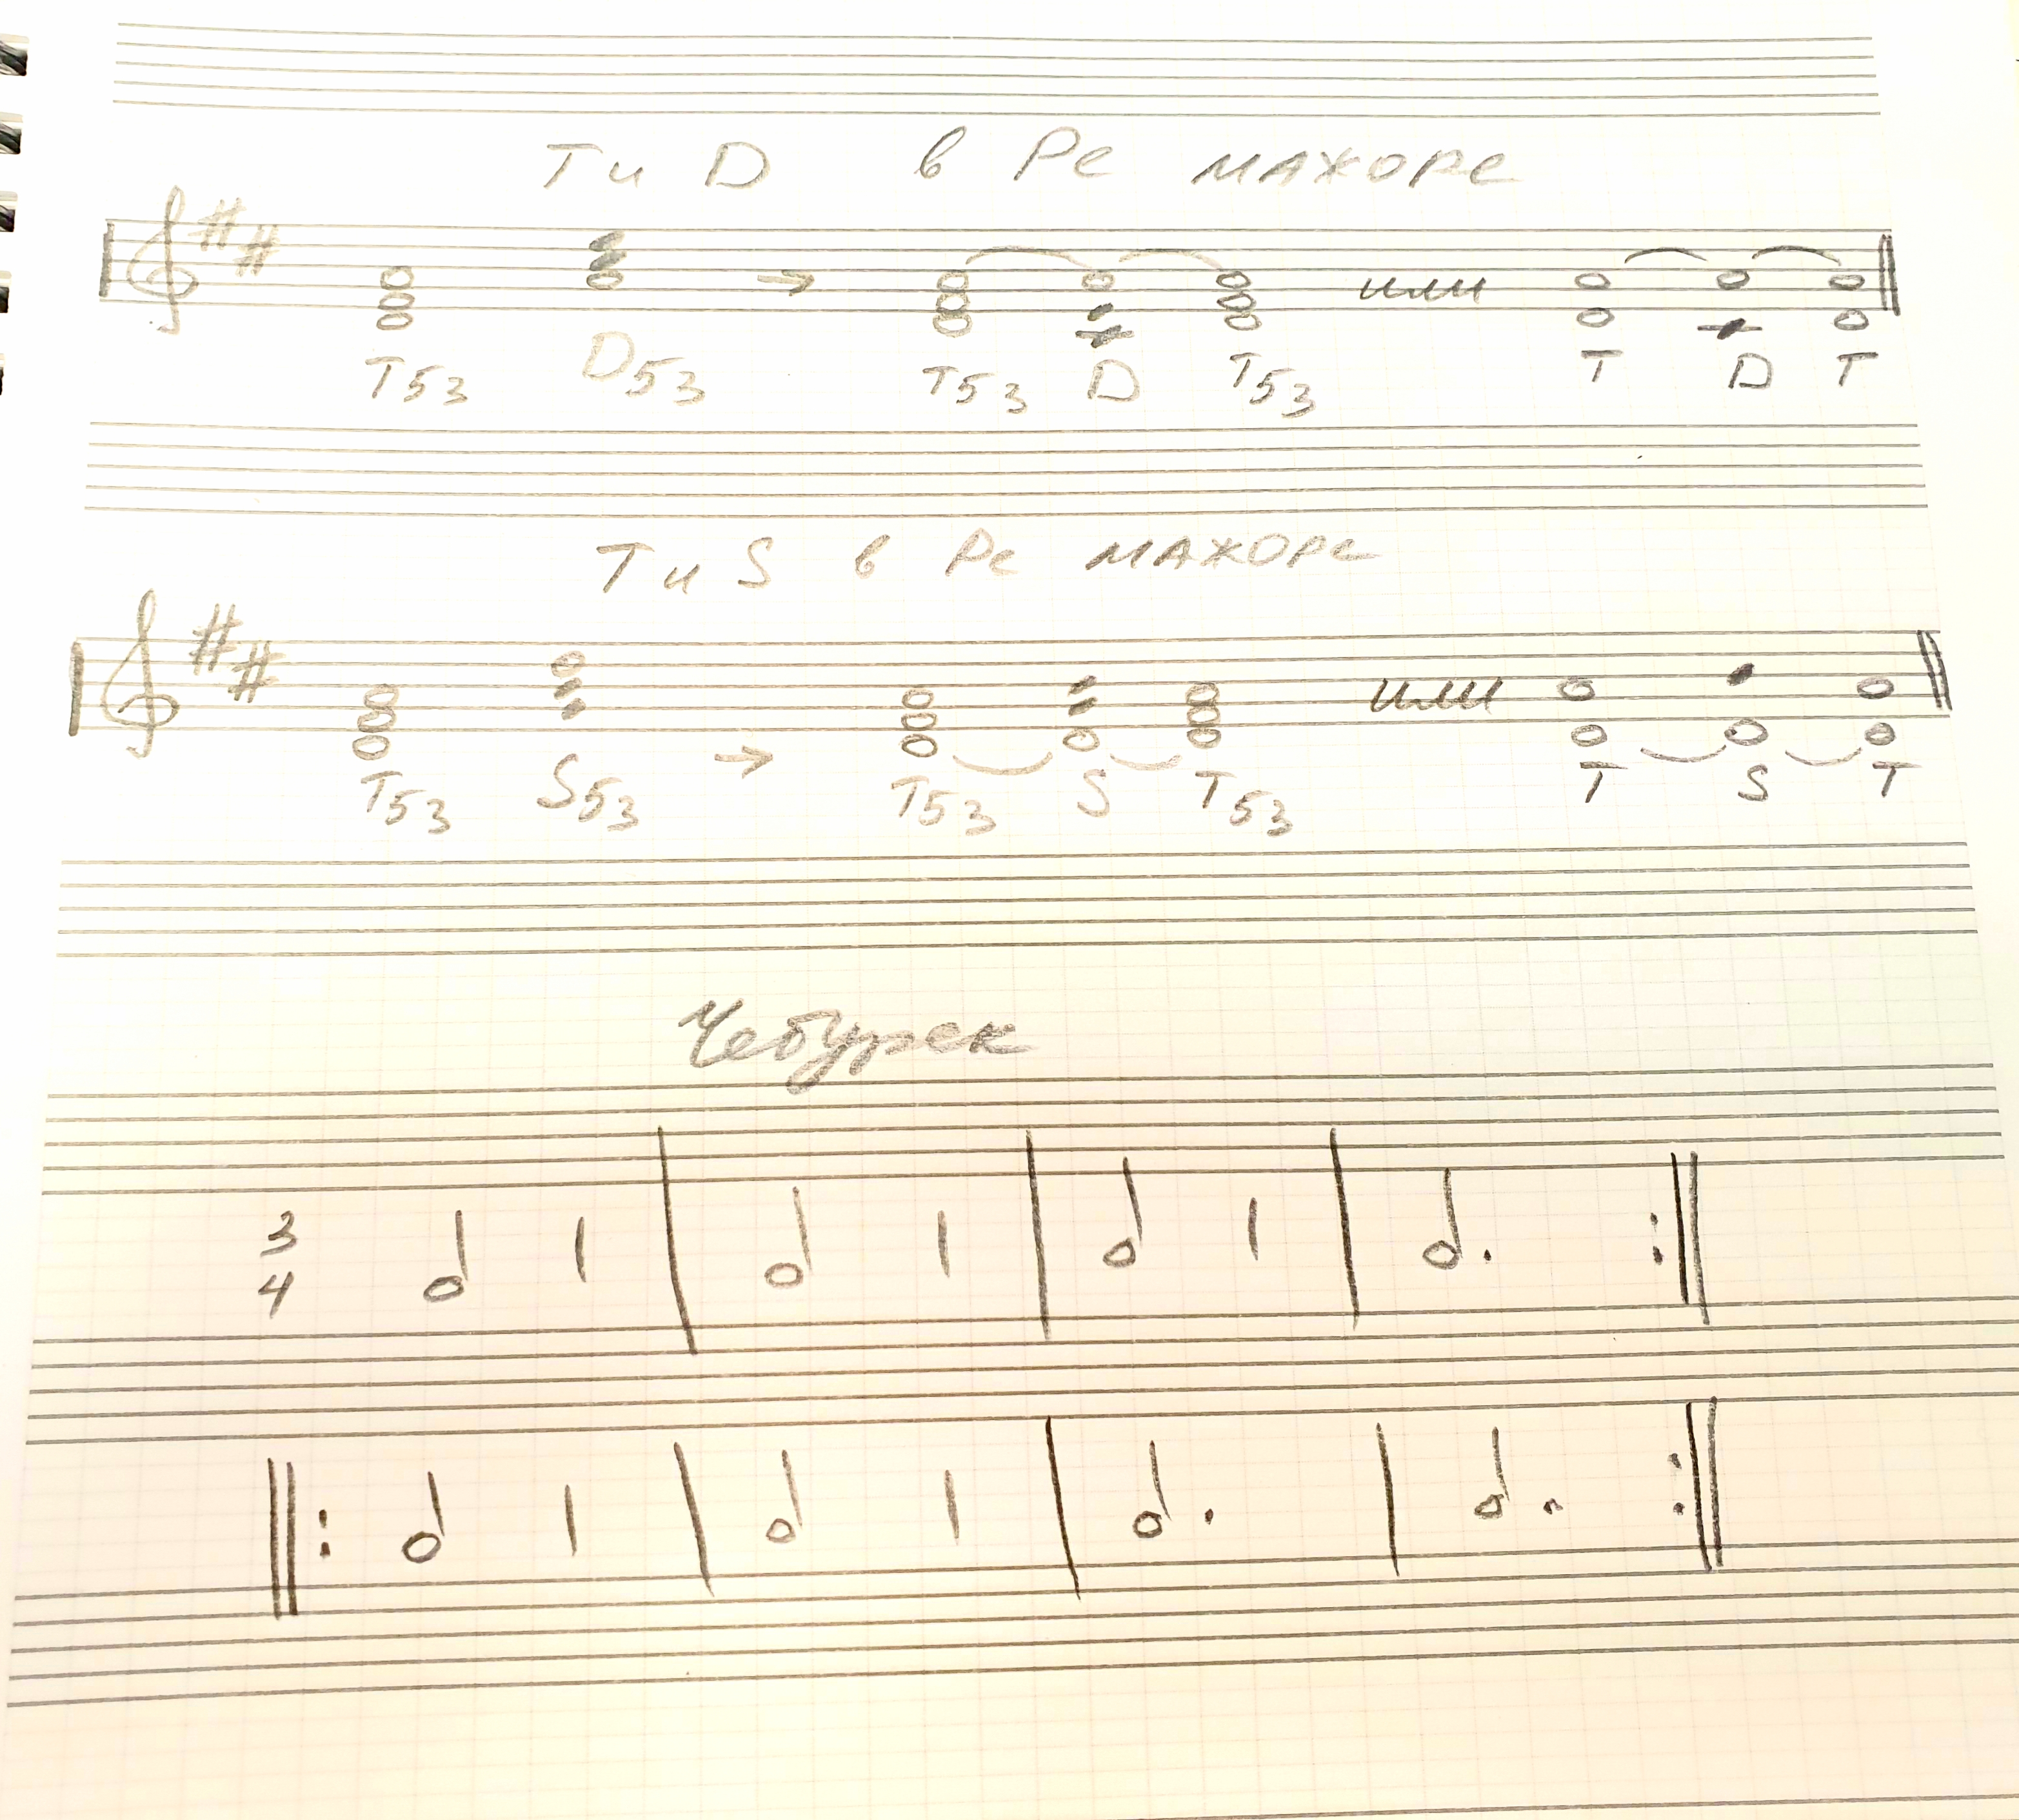 Т и D в Ре мажоре
T53 D53 → T53 D T53 или T D T
Т и S в Ре мажоре
T53 S53 → T53 S T53 или T S T
Чебурек
3
4